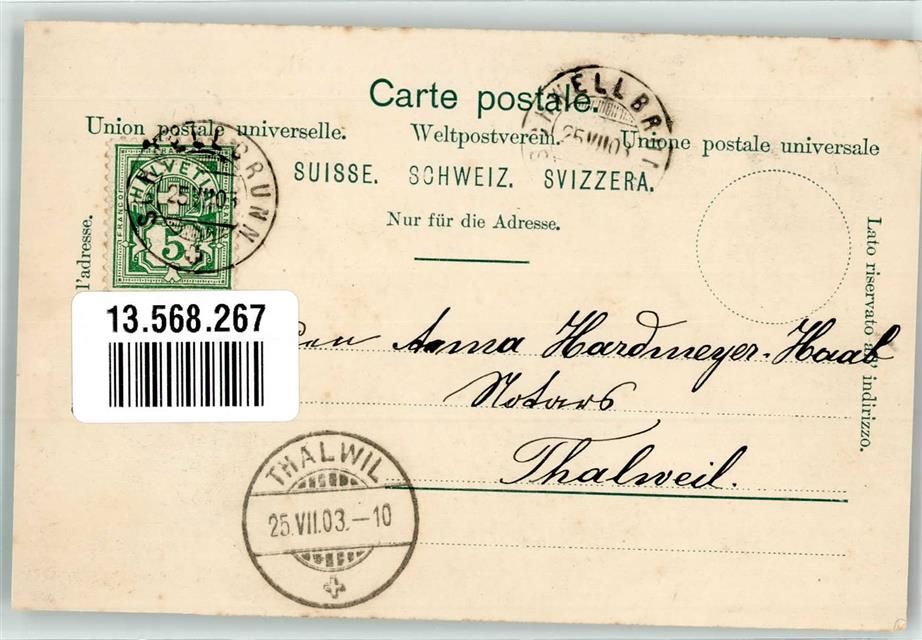 Carte postale.
Union postale universelle. Weltpostverein. Unione postale universale
SUISSE. SCHWEIZ. SVIZZERA.
Nur für die Adresse.
l'adresse.
Lato riservato all' indirizzo.
SCHWELLBRUNN
25 VII 03
HELVETIA
FRANCO
5
SCHWELLBR
25 VII 03
13.568.267
Anna Hardmeyer-Haab
Notars
Thalweil.
THALWIL
25.VII.03.–10